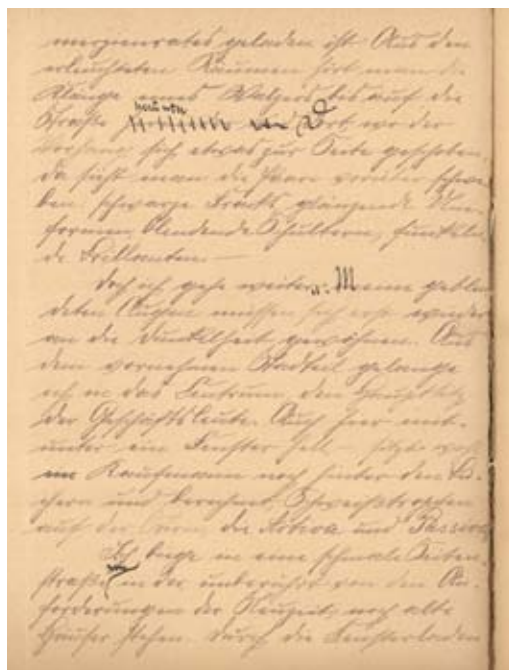 merzienrates geladen ist. Aus den
erleuchteten Räumen hört man die
Klänge eines Walzers bis auf die
Straße und dort, wo der
Vorhang sich etwas zur Seite geschoben,
da sieht man die Paare vorüber schwe-
ben schwarze Fracks, glänzende Uni-
formen, blendende Schultern, funkeln-
de Brillanten. —
Doch ich gehe weiter. Meine geblen
deten Augen müssen sich erst wieder
an die Dunkelheit gewöhnen. Aus
dem vornehmen Stadteil gelange
ich in das Centrum, den Hauptsitz
der Geschäftsleute. Auch hier mit-
unter ein Fenster hell – sitzt wohl
ein Kaufmann noch hinter den Bü-
chern und berechnet, Schweißtropfen
auf der Stirn, die Aktiva und Passiva.
Ich biege in eine schmale Seiten-
straße, in der unberührt von den An-
forderungen der Neuzeit, noch alte
Häuser stehen. Durch die Fensterladen